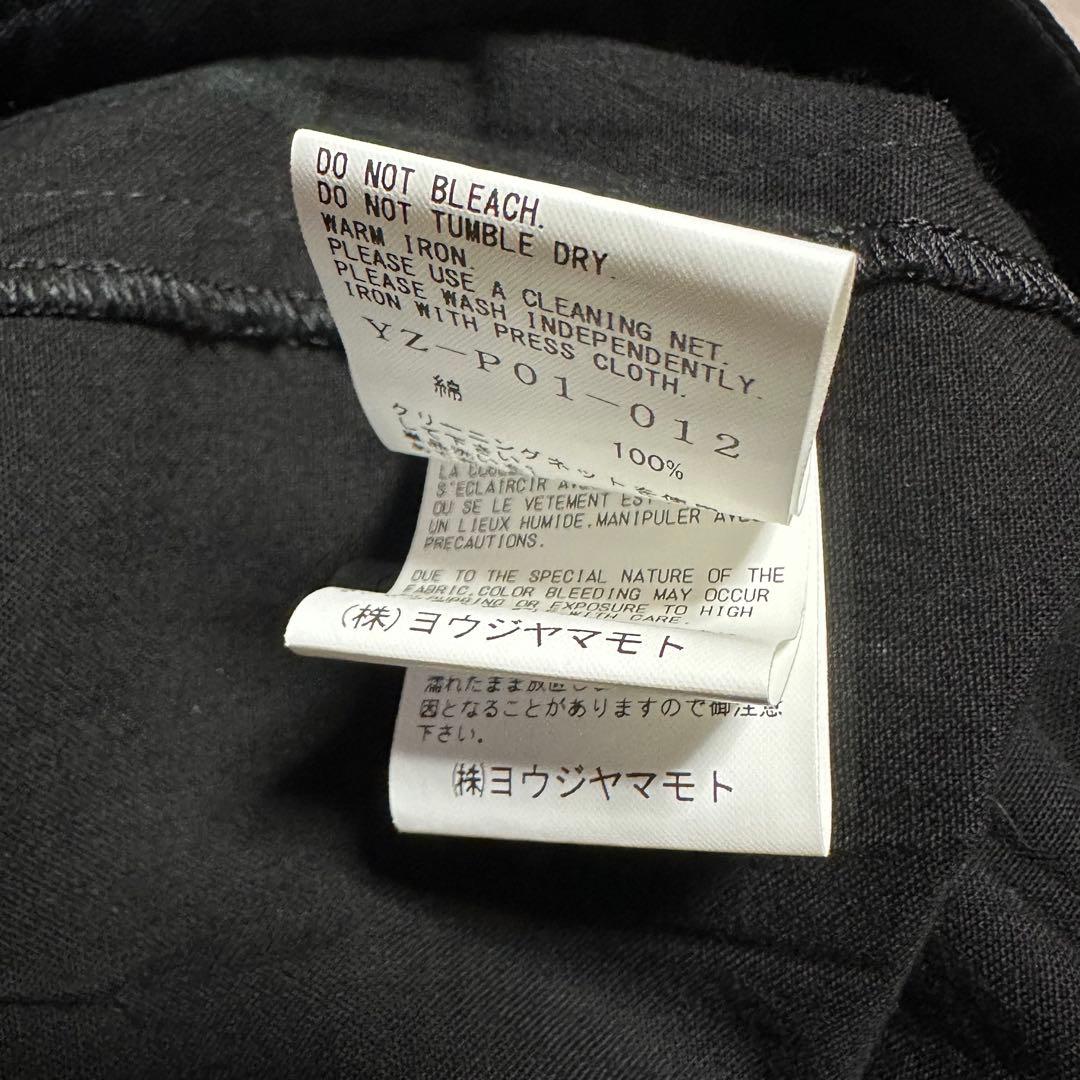 DO NOT BLEACH.
DO NOT TUMBLE DRY.
WARM IRON.
PLEASE USE A CLEANING NET.
PLEASE WASH INDEPENDENTLY.
IRON WITH PRESS CLOTH.
YZ-P01-012
綿
100%
クリーニングネットを
して下さい
S'ECLAIRCIR
OU SE LE VETEMENT EST
UN LIEUX HUMIDE,MANIPULER
PRECAUTIONS.
DUE TO THE SPECIAL NATURE OF THE
FABRIC,COLOR BLEEDING MAY OCCUR
OR EXPOSURE TO HIGH
WITH CARE.
(株)ヨウジヤマモト
濡れたまま放置
因となることがありますので御注意
下さい。
㈱ヨウジヤマモト